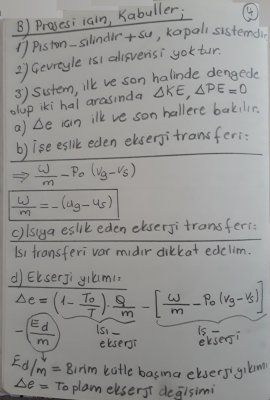 4
B) Prosesi için, Kabuller;
1) Piston-silindir + su, kapalı sistemdir
2) Çevreyle ısı alışverişi yoktur.
3) Sistem, ilk ve son halinde dengede
olup iki hal arasında ΔKE, ΔPE=0
a) Δe için ilk ve son hallere bakılır.
b) İşe eşlik eden ekserji transferi:
⇒ W/m - P₀ (vg - vs)
W/m = -(ug - us)
c) Isıya eşlik eden ekserji transferi:
Isı transferi var mıdır dikkat edelim.
d) Ekserji yıkımı:
Δe = (1 - T₀/T) . Q/m - [W/m - P₀ (vg - vs)]
- Ed/m
Isı-ekserji
İş-ekserji
Ed/m = Birim kütle başına ekserji yıkımı
Δe = Toplam ekserji değişimi